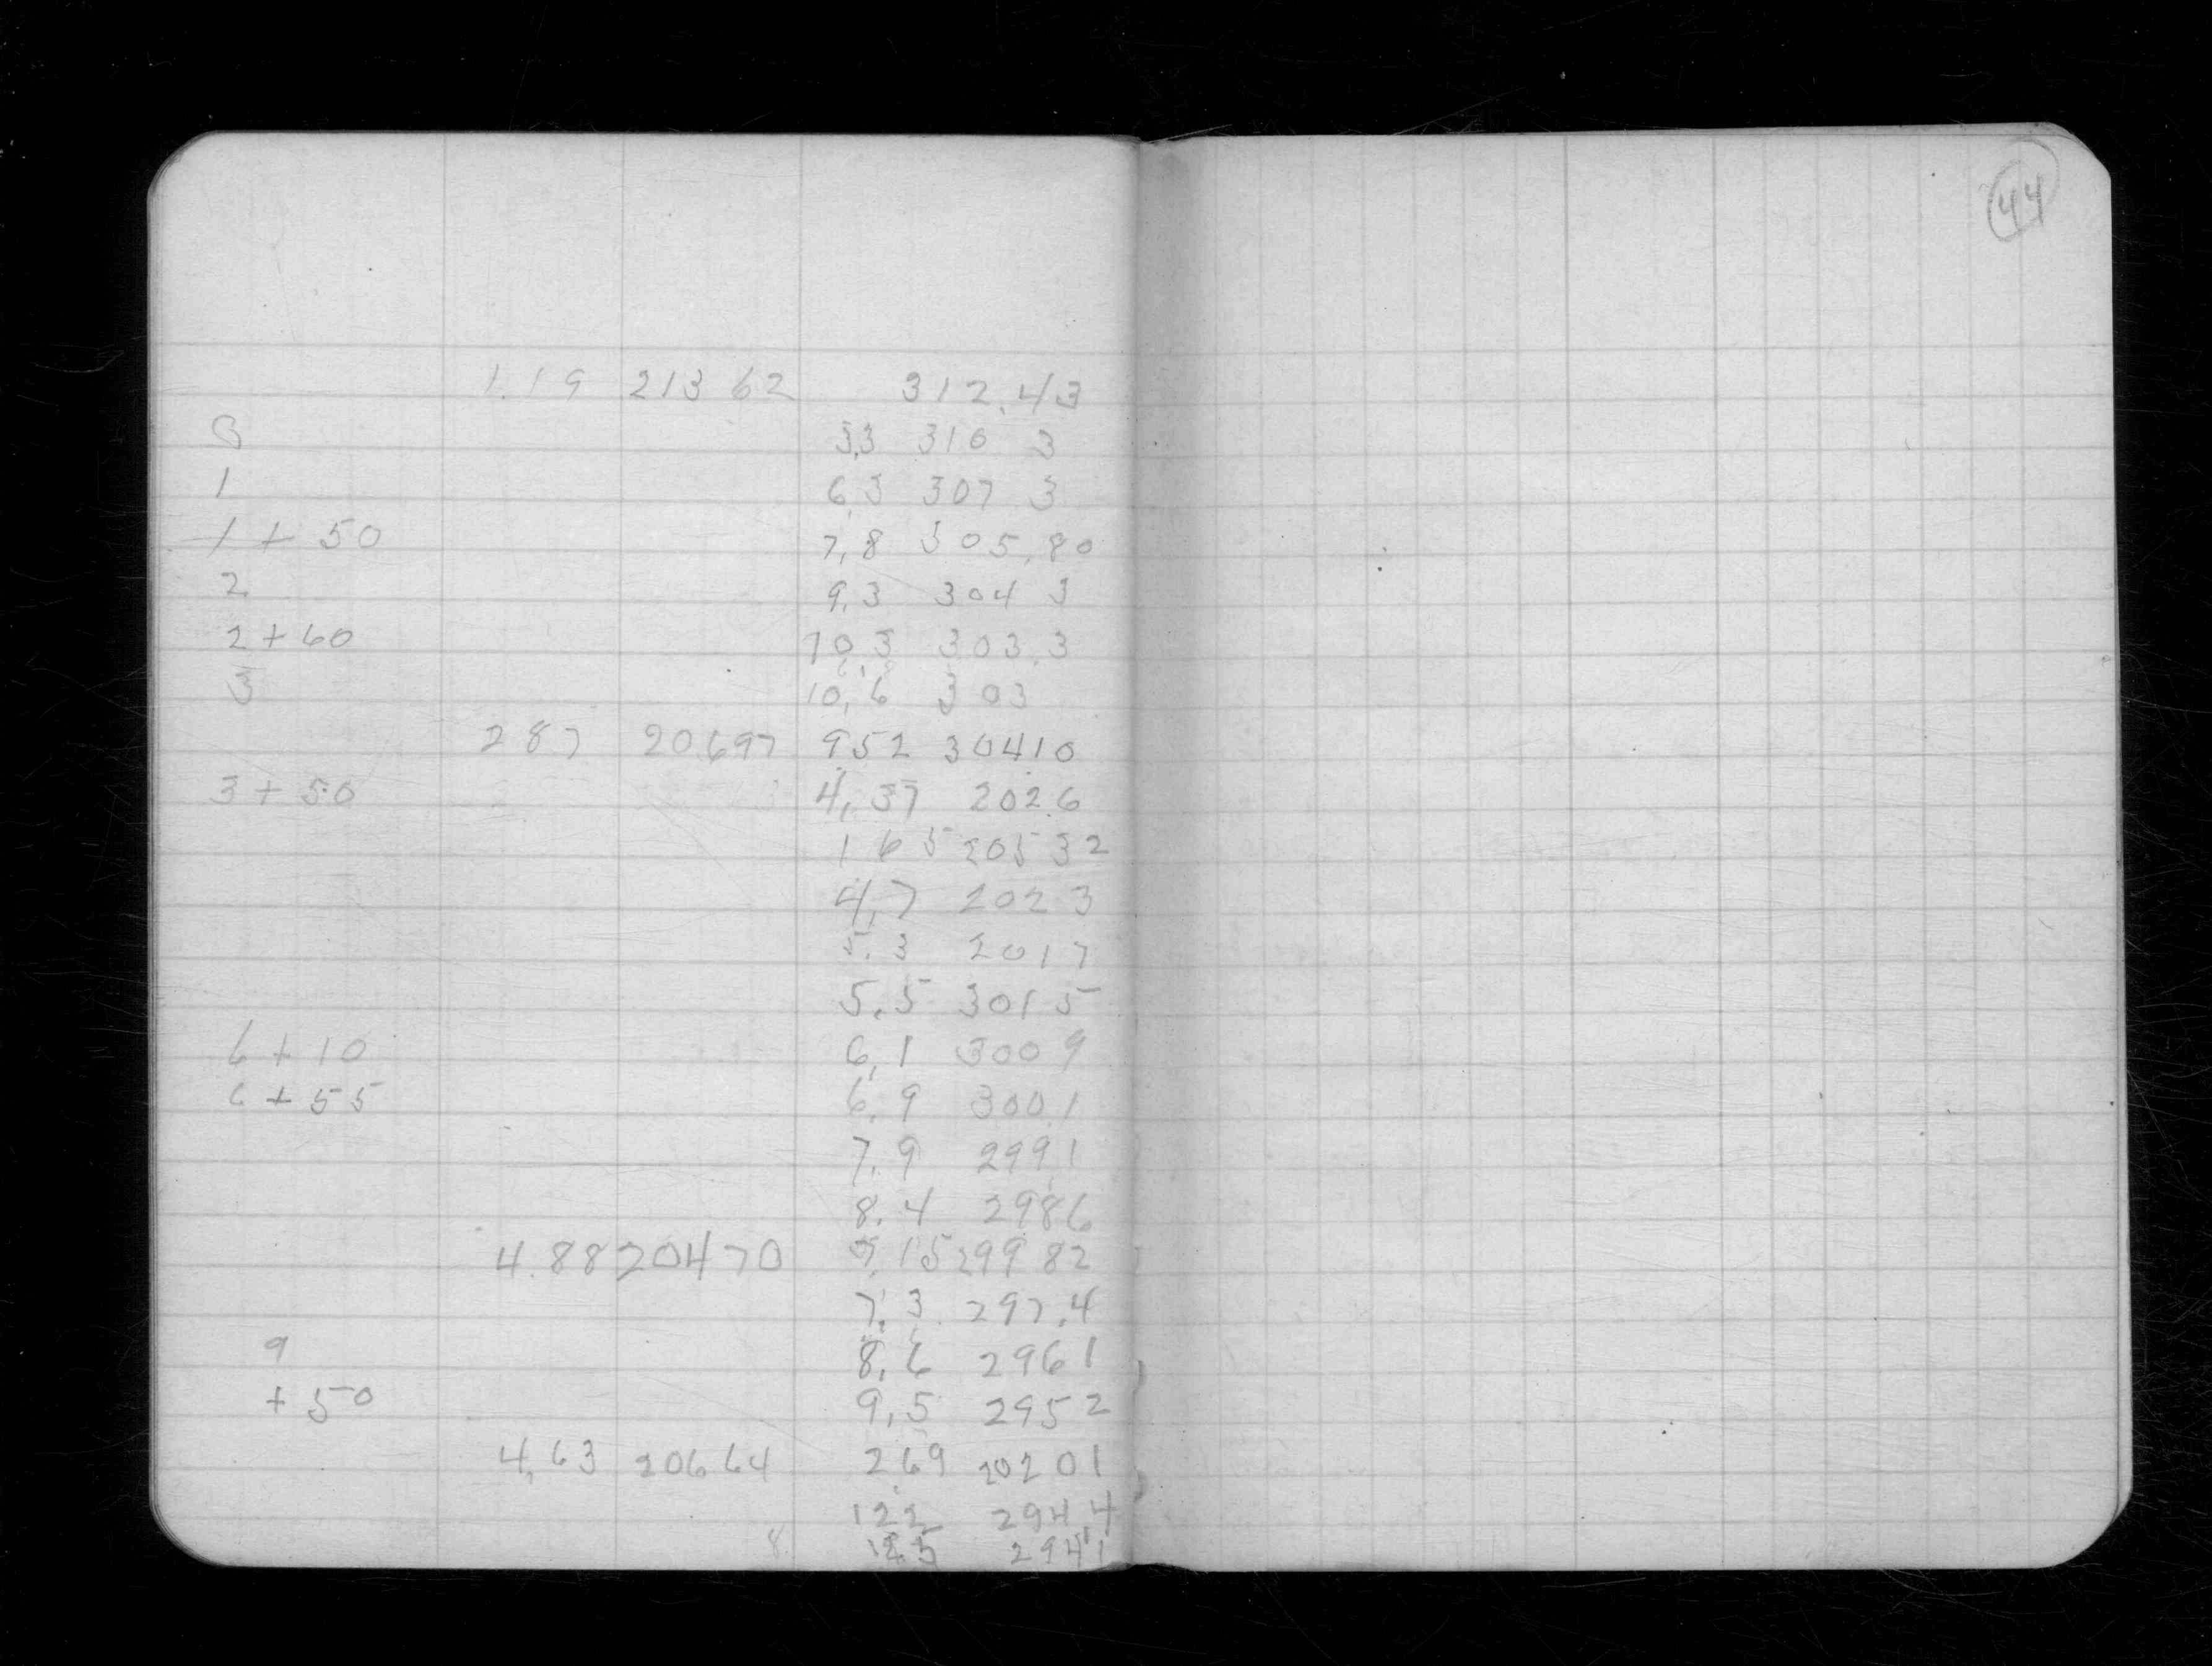 1.19 213 62 312.43
0 3,3 310 3
1 6,3 307 3
1 + 50 7,8 305.80
2 9,3 304 3
2 + 60 10,3 303.3
3 10,6 303
287 20697 952 30410
3 + 50 4,37 2026
1 65 20532
4,7 202 3
5.3 2017
5,5 3015
6 + 10 6,1 3009
6 + 55 6,9 300.1
7,9 299 1
8.4 2986
4.88 20470 7,15 299 82
7.3 297.4
9 8,6 2961
+ 50 9,5 2952
4,63 20664 2.69 20201
122 294 4
125 2941
44